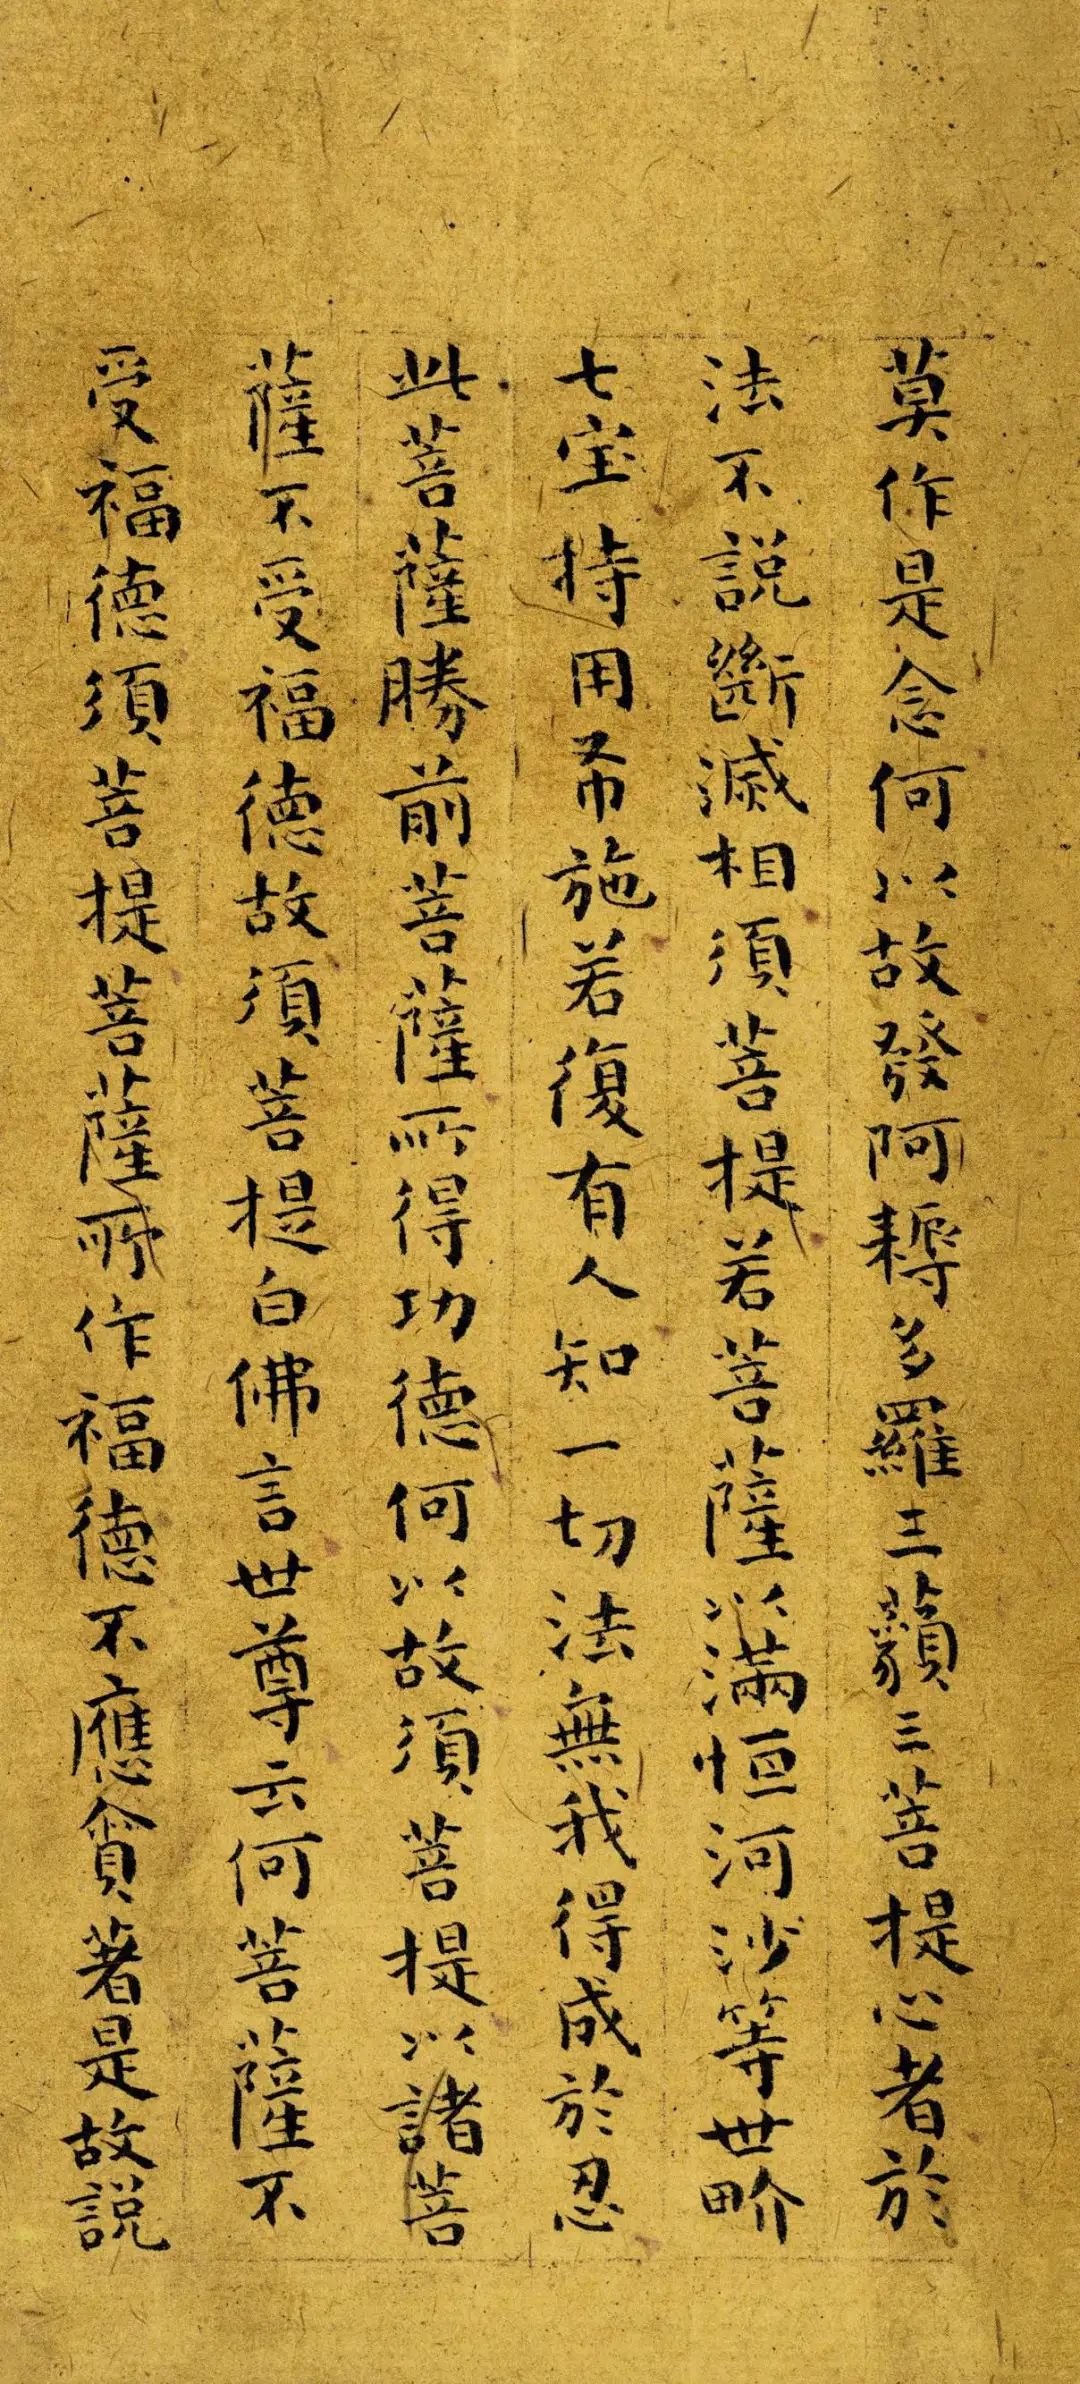 莫作是念何以故發阿耨多羅三藐三菩提心者於
法不說斷滅相須菩提若菩薩以滿恒河沙等世界
七宝持用布施若復有人知一切法無我得成於忍
此菩薩勝前菩薩所得功德何以故須菩提以諸菩
薩不受福德故須菩提白佛言世尊云何菩薩不
受福德須菩提菩薩所作福德不應貪著是故說